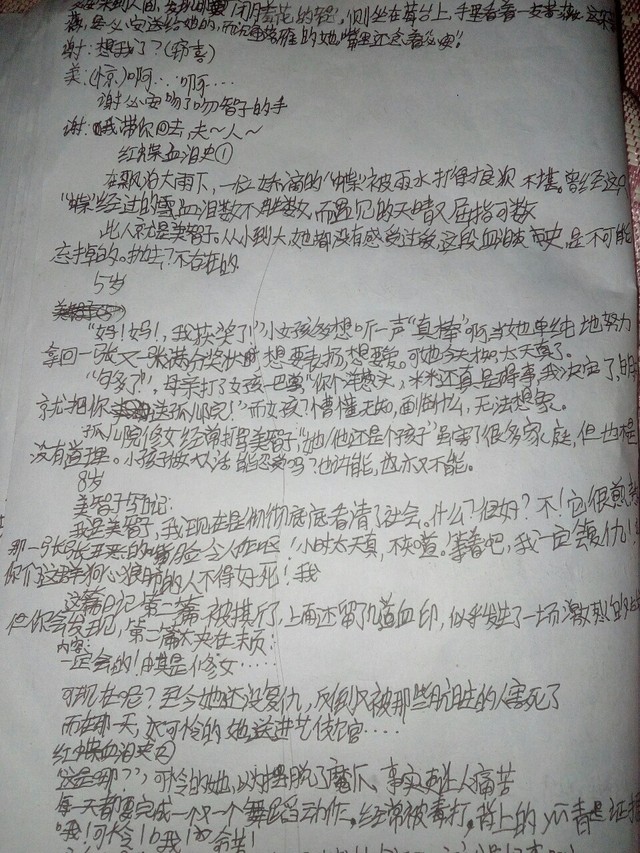 则坐在舞台上,手里
谢:想我了?(窃喜)
美:(惊)啊…啊…
谢必安吻了吻智子的手
谢:我带你回去,夫~人~
红蝶血泪史①
在飘泊大雨下,一位娇滴的"蝶"被雨水打得狼狈不堪。曾经这只
"蝶"经过的雪血泪数不胜数,而遇见的天晴又屈指可数
此人就是美智子。从小到大,她都没有感受过爱,这段血泪史,是不可能
忘掉的。抛去?不存在的
5岁
"妈!妈!,我获奖了!"小女孩多想听一声"真棒"啊,当她单纯地努力
拿回一张又一张满分奖状时想要表扬,想要爱。可她太天真了。
"够了",母亲打了女孩一巴掌"你个洋葱头,真是碍事,我决定了,明
就把你送孤儿院!"而女孩?懵懂无知,面临什么,无法想象。
孤儿院修女经常打骂美智子,"她/他还是个孩子"虽害了很多家庭,但也
没有道理。小孩子做大人活能忍受吗?也许能,也亦又不能。
8岁
美智子日记:
我是美智子,我现在是彻彻底底看清了社会。什么?很好?不!它很煎熬
那一张张丑恶的嘴脸令人作呕!小时太天真,不知道。等着吧,我一定复仇!
你们这群狗心狼肺的人不得好死!我
这篇日记第二篇被撕了,上面还留了几道血印,似乎发生了一场激烈的
但你会发现,第二篇夹在末页:
内容:
一定会的!尤其是修女……
可现在呢?至今她还没复仇,反倒又被那些肮脏的人害死了
而在那一天,可怜的她送进艺伎馆……
红蝶血泪史②
"这是哪?",可怜的她,以为摆脱了魔爪,事实更让人痛苦
每一天都要完成一个又一个舞蹈动作。经常被毒打,背上的 青是证据